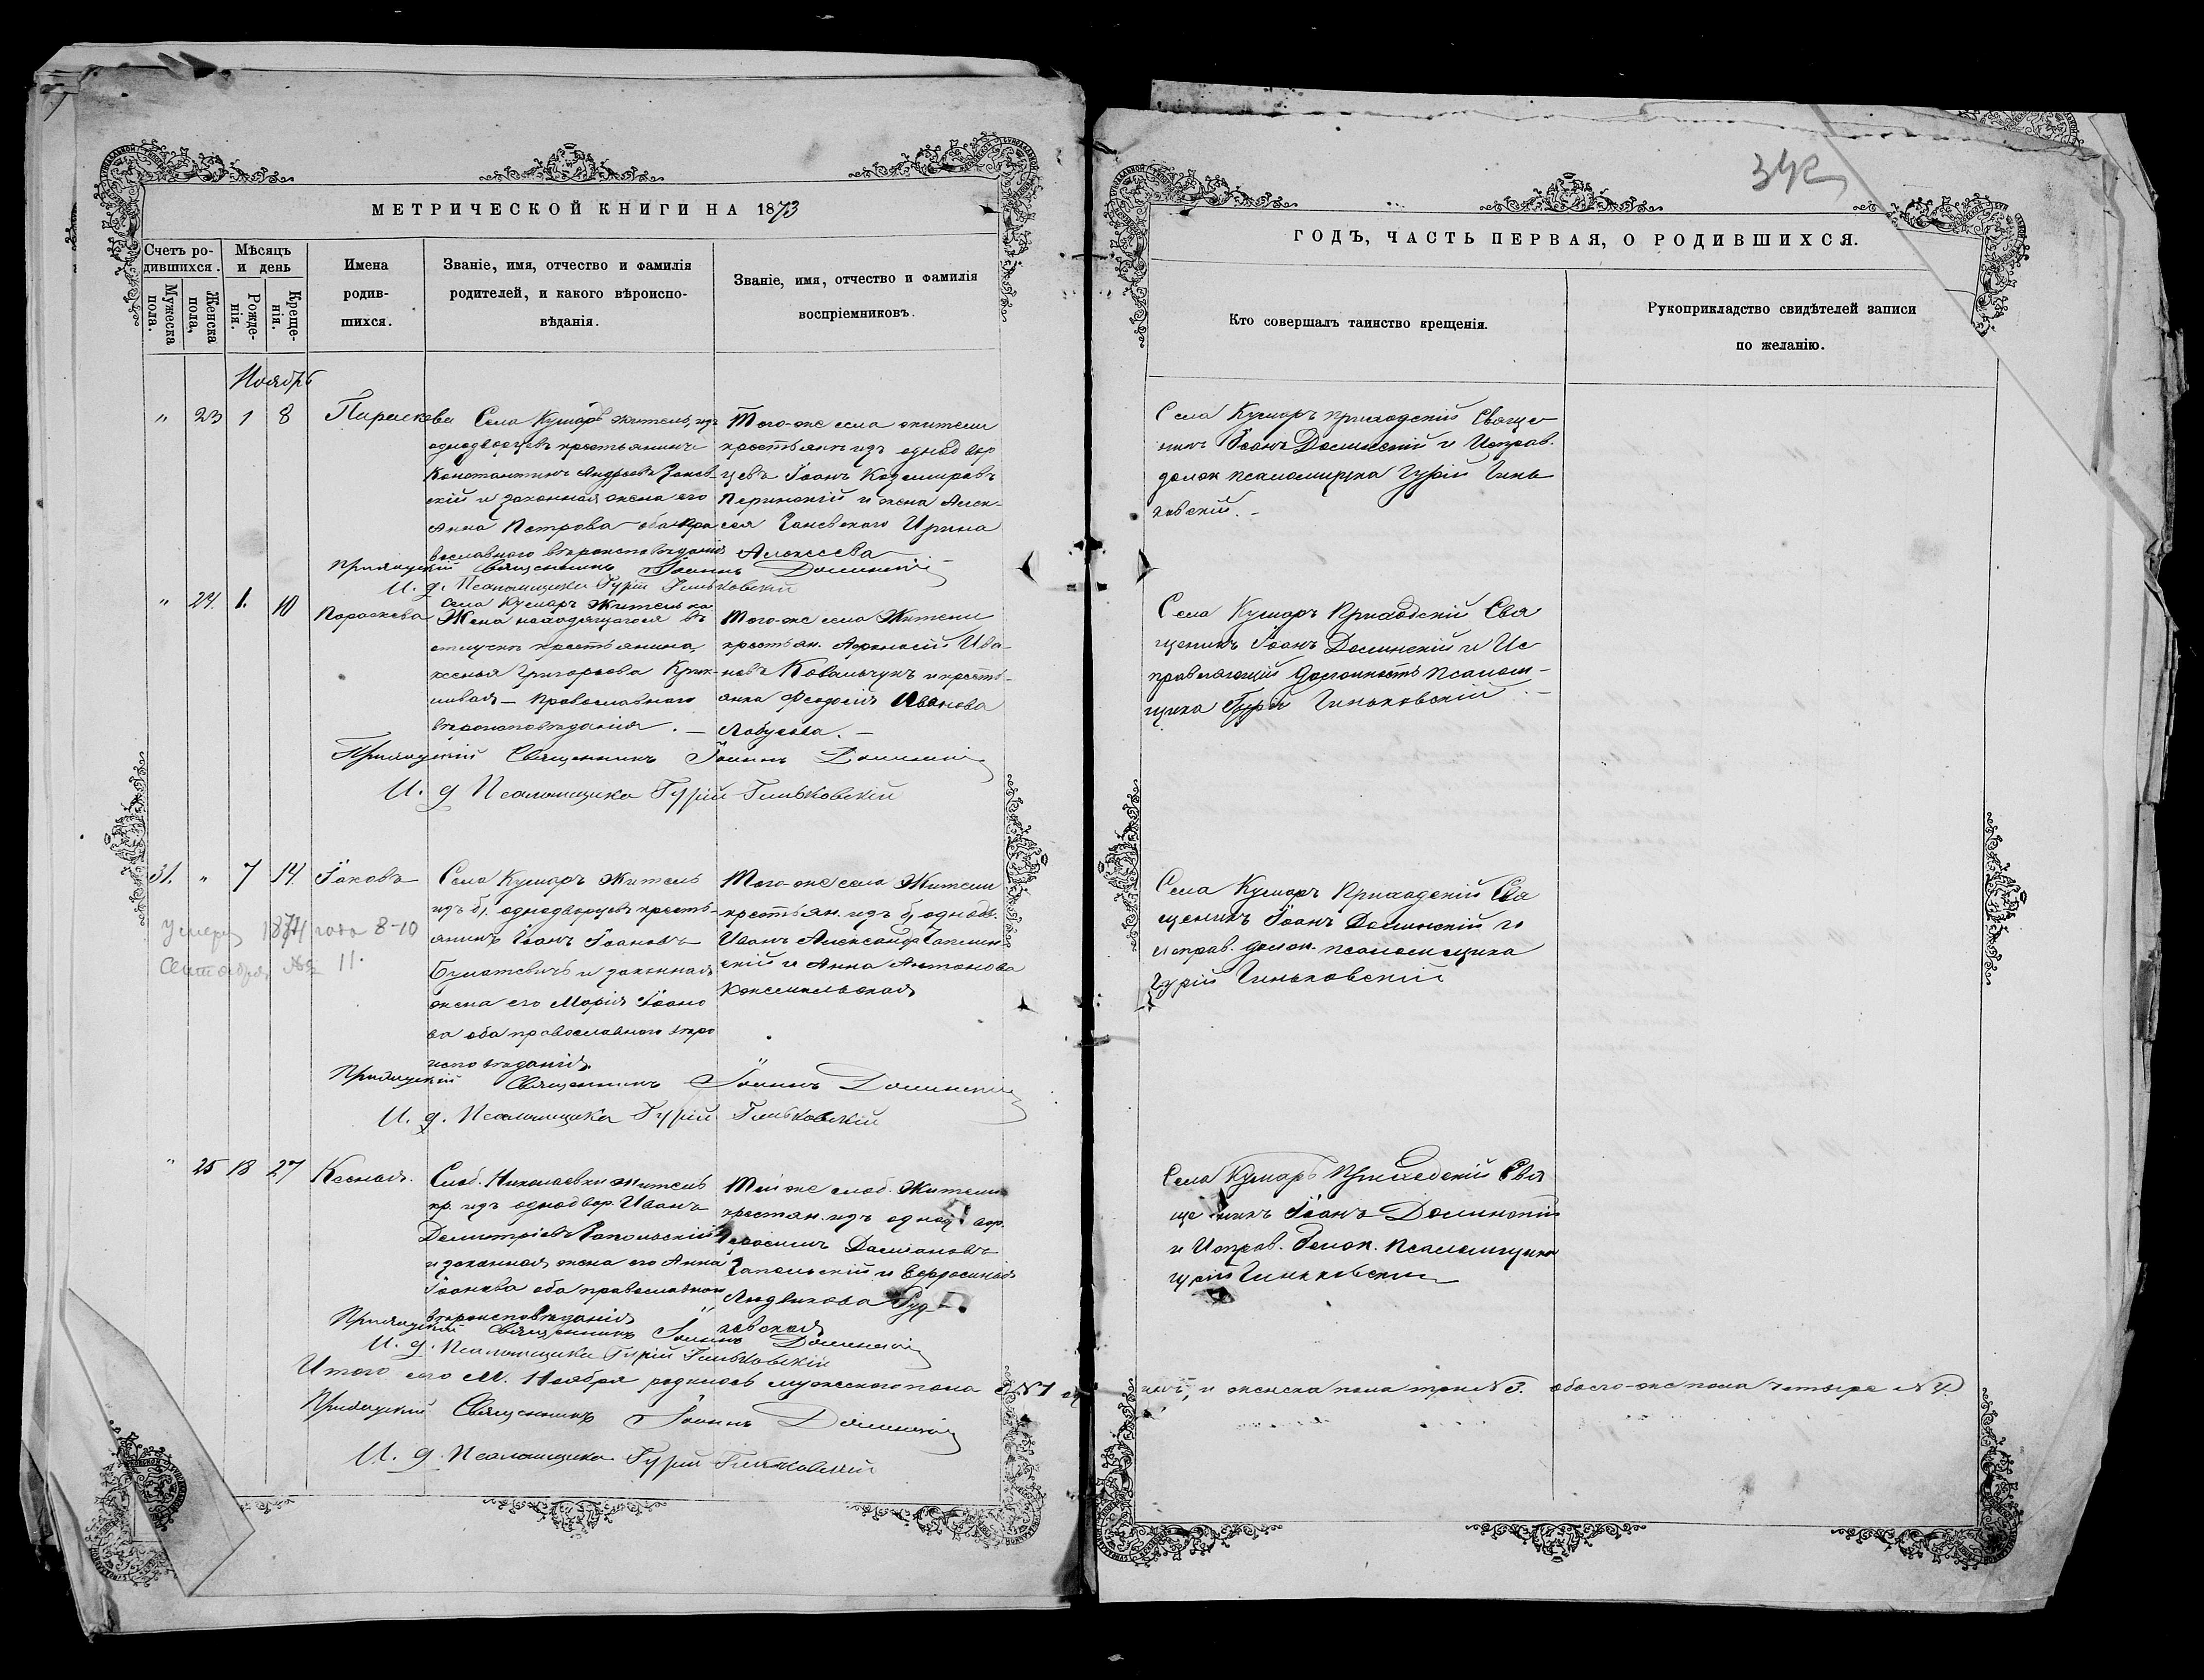 МЕТРИЧЕСКОЙ КНИГИ НА 1873
Счетъ ро-
дившихся.
Мѣсяцъ
и день
Мужеска
пола.
Женска
пола,
Рожде-
нія.
Креще-
нія.
Имена
родив-
шихся.
Званіе, имя, отчество и фамилія
родителей, и какого вѣроиспо-
вѣданія.
Званіе, имя, отчество и фамилія
воспріемниковъ.
Ноябрь
" 23 1 8
Параскева
Села Кумаръ житель, изъ
однодворцевъ крестьянинъ
Константинъ Андреевъ
скій и законная жена его
Анна Петрова оба пра
вославнаго вѣроисповѣданія
Того-же села жители
крестьян. изъ однодвор
цевъ Іоанъ
и жена Алек-
сея Ирина
Алексеева
Приходскій Священникъ Іоаннъ Долинскій
И. д. Псаломщика Гурій Гиньковскій
" 24. 1. 10
Параскева
Села Кумаръ жителька
Жена находящагося въ
отлучкѣ крестьянина,
Ксенія Григорьева
Православнаго
вѣроисповѣданія. —
Того-же села Жители
крестьян. Афанасій Ива-
новъ Ковальчукъ и кресть-
янка Феодосія Иванова
Приходскій Священникъ Іоаннъ Долинскій
И. д Псаломщика Гурій Гиньковскій
31. " 7 14.
Іаковъ
Села Кумаръ Житель
изъ б. однодворцевъ кресть-
янинъ Іоанъ Іоановъ
Булатевичъ и законная
жена его Марія Іоано
ва оба православнаго вѣро
исповѣданія.
Того-же села Жители
крестьян. изъ б. однодв.
Иванъ Александр.
скій и Анна Антонова
Умеръ 1874 года 8-10
Сентября № 11.
Приходскій Священникъ Іоаннъ Долинскій
И. д. Псаломщика Гурій Гиньковскій
" 25 18 27
Ксенія.
Слоб. Николаевки житель
кр. изъ однодвор. Иванъ
Димитріевъ
и законная жена его Анна
Іоанова оба православнаго
вѣроисповѣданія
Той же слоб. Жители
крестян. изъ однод вор.
Даміановъ
и Евфросинія
Людвикова
Приходскій Священникъ Іоаннъ Долинскій
И. д. Псаломщика Гурій Гиньковскій
Итого сего М. Ноября родилось мужескаго пола № 1
Приходскій Священникъ Іоаннъ Долинскій
И. д. Псаломщика Гурій Гиньковскій
342
ГОДЪ, ЧАСТЬ ПЕРВАЯ, О РОДИВШИХСЯ.
Кто совершалъ таинство крещенія.
Рукоприкладство свидѣтелей записи
по желанію.
Села Кумаръ приходскій Свяще
никъ Іоанъ Долинскій и Исправ.
должн псаломщика Гурій Гинь
ковскій. —
Села Кумаръ Приходскій Свя
щеникъ Іоанъ Долинскій и Ис
правляющій должность Псалом-
щика Гурій Гиньковскій. —
Села Кумаръ Приходскій Свя
щеникъ Іоанъ Долинскій и
исправ. должн. псаломщика
Гурій Гиньковскій
Села Кумаръ Приходскій Свя
ще никъ Іоанъ Долинскій
и Исправ. должн. Псаломщика
Гурій Гиньковскій
и женска пола три № 3. обоего-же пола четыре № 4.